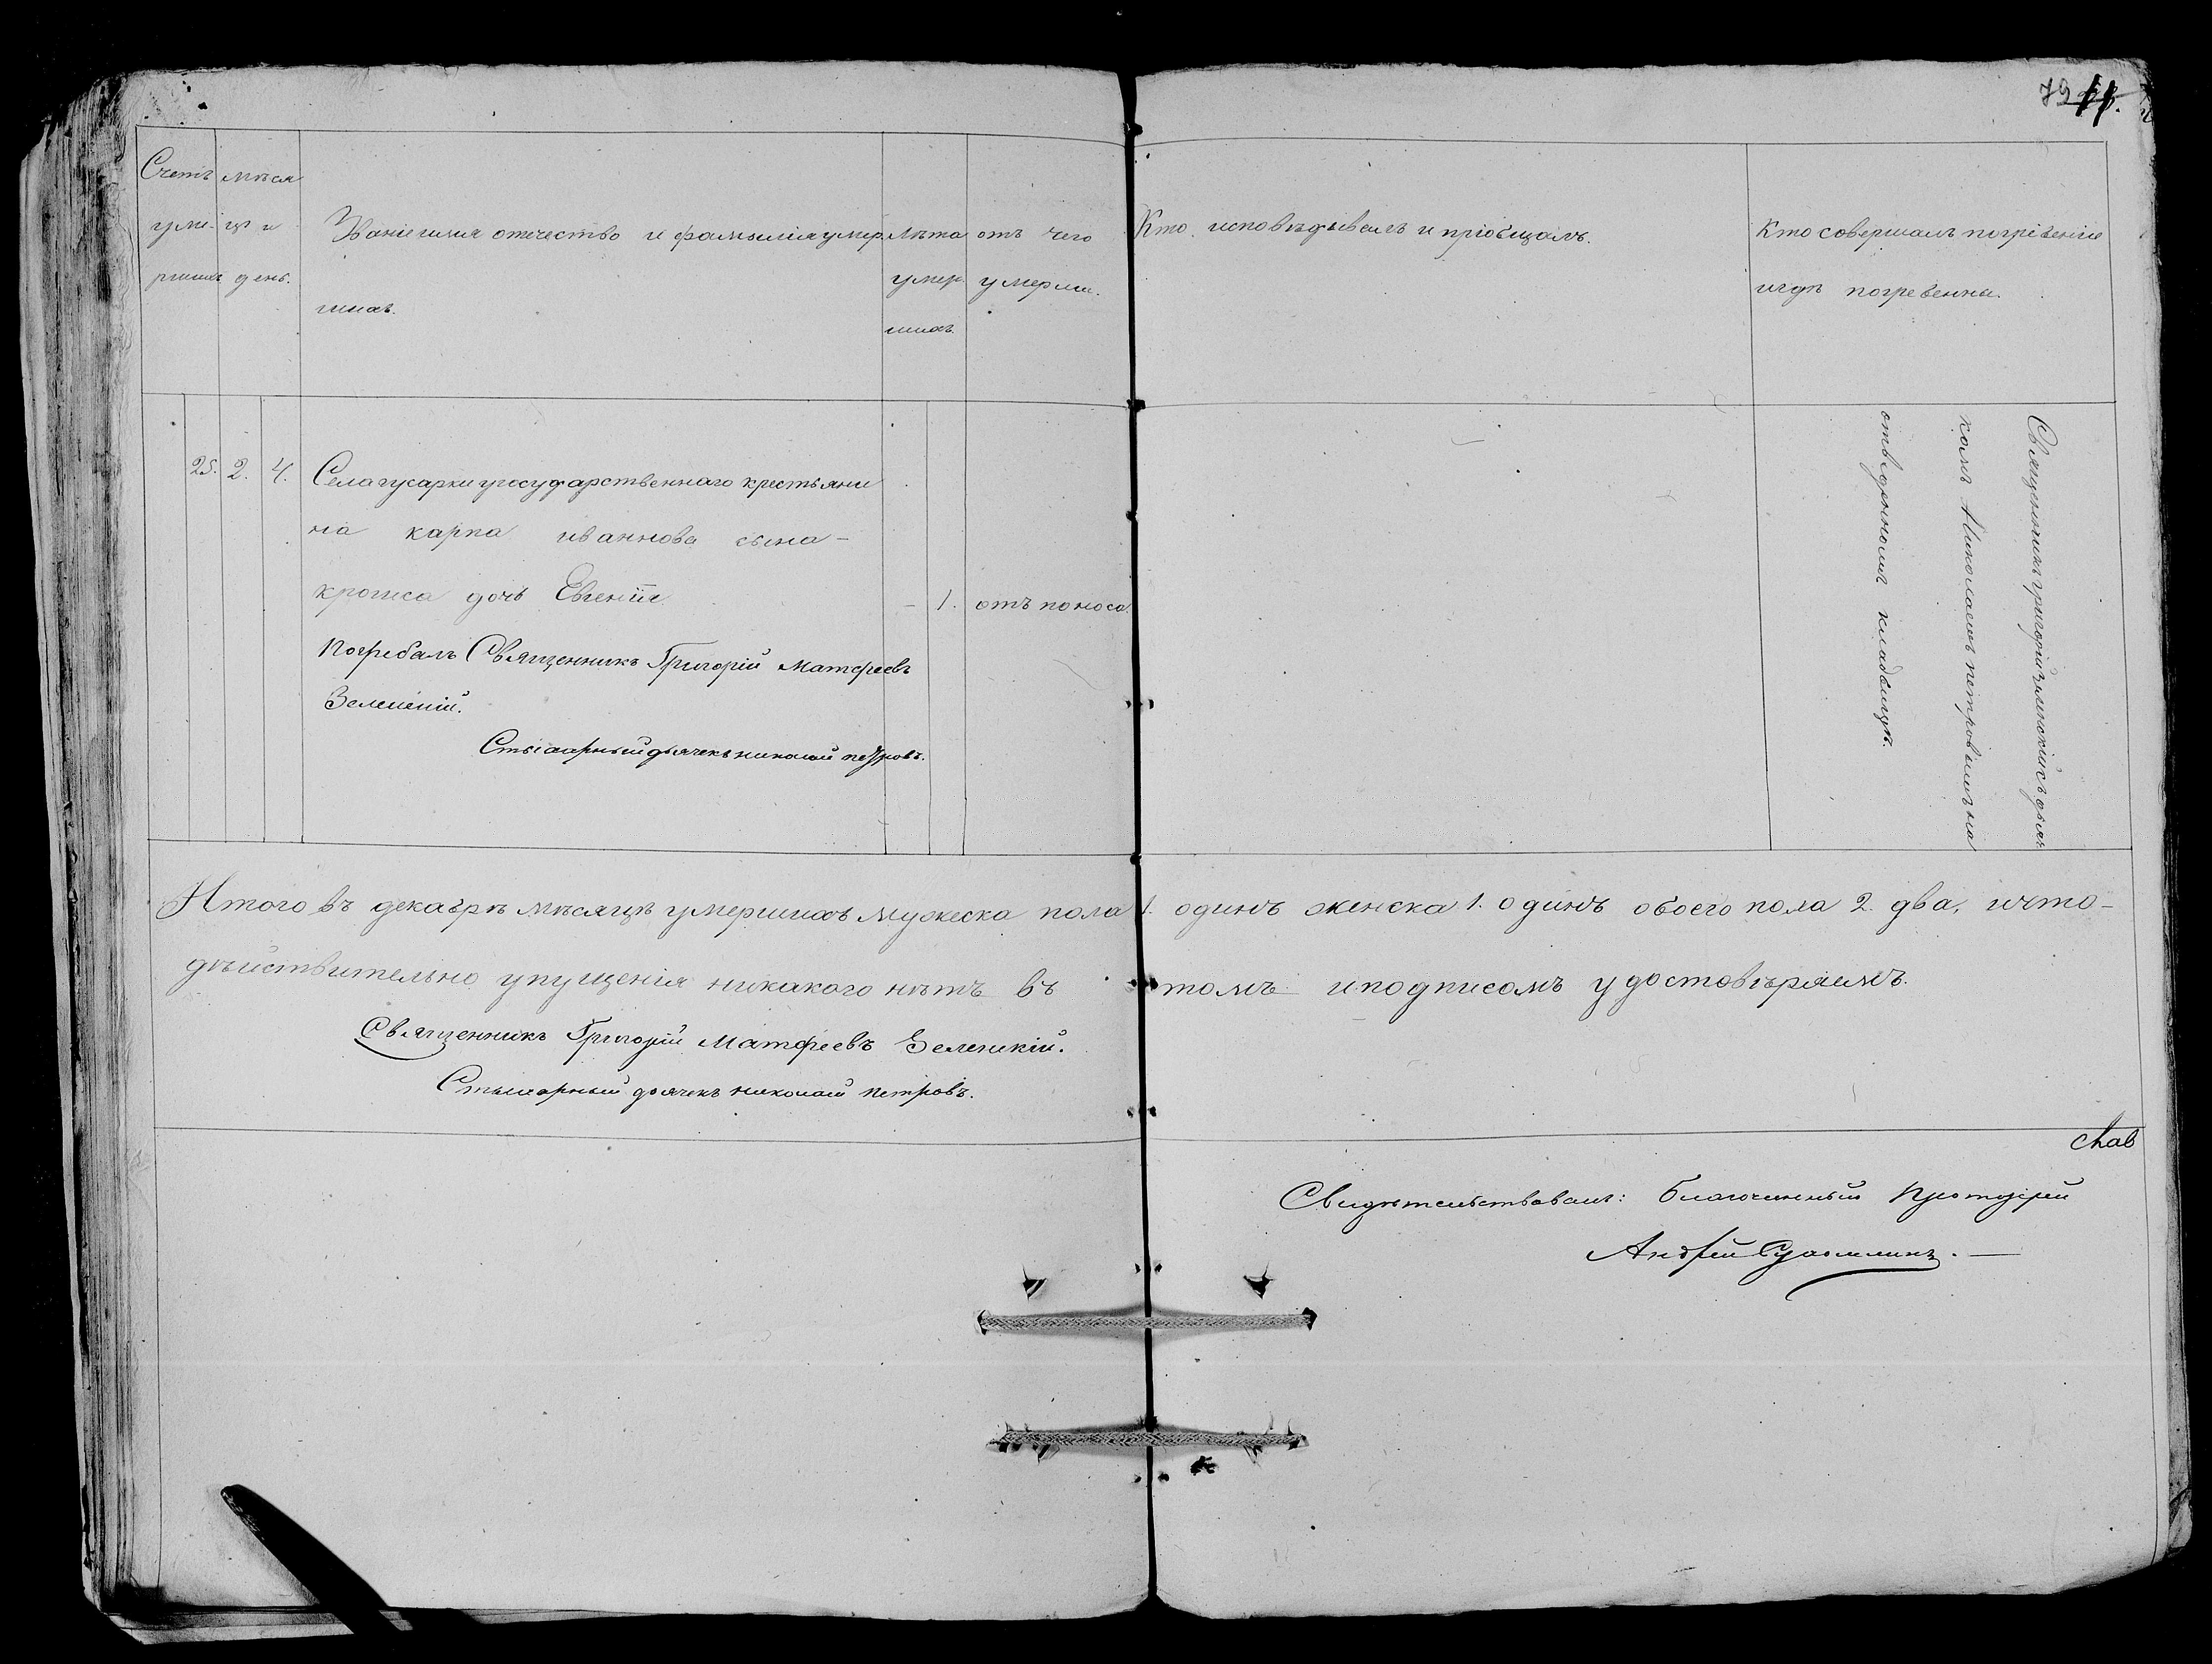 79
Счетъ уме- ршихъ
мѣся ца и день.
Званіе имя отечество и фамылія умер шихъ.
Лѣта умер шихъ.
отъ чего умерли.
Кто исповѣдывалъ и пріобщалъ.
Кто совершалъ погребеніе
игдѣ погребенны.
25. 2. 4. Села гусарки государственнаго крестьяни
на карпа иваннова сына -
дочь Евгенія - 1. отъ поноса.
Погребалъ Священникъ Григорій Матфеевъ
Зеленскій.
дьячекъ николай петровъ.
Священникъ григорій зеленскій съ дьяч
комъ Николаемъ петровымъ на
отведенномъ кладбищѣ.
Итого въ декабрѣ мѣсяцѣ умершихъ мужеска пола 1. одинъ женска 1. одинъ обоего пола 2. два, ичто -
дѣйствительно упущенія никакого нѣтъ въ томъ иподписомъ удостовѣряемъ.
Священникъ Григорій Матфеевъ Зеленскій.
дьячекъ николай петровъ.
Свидѣтельствовалъ: Благочинный Протоіерей
Андрей